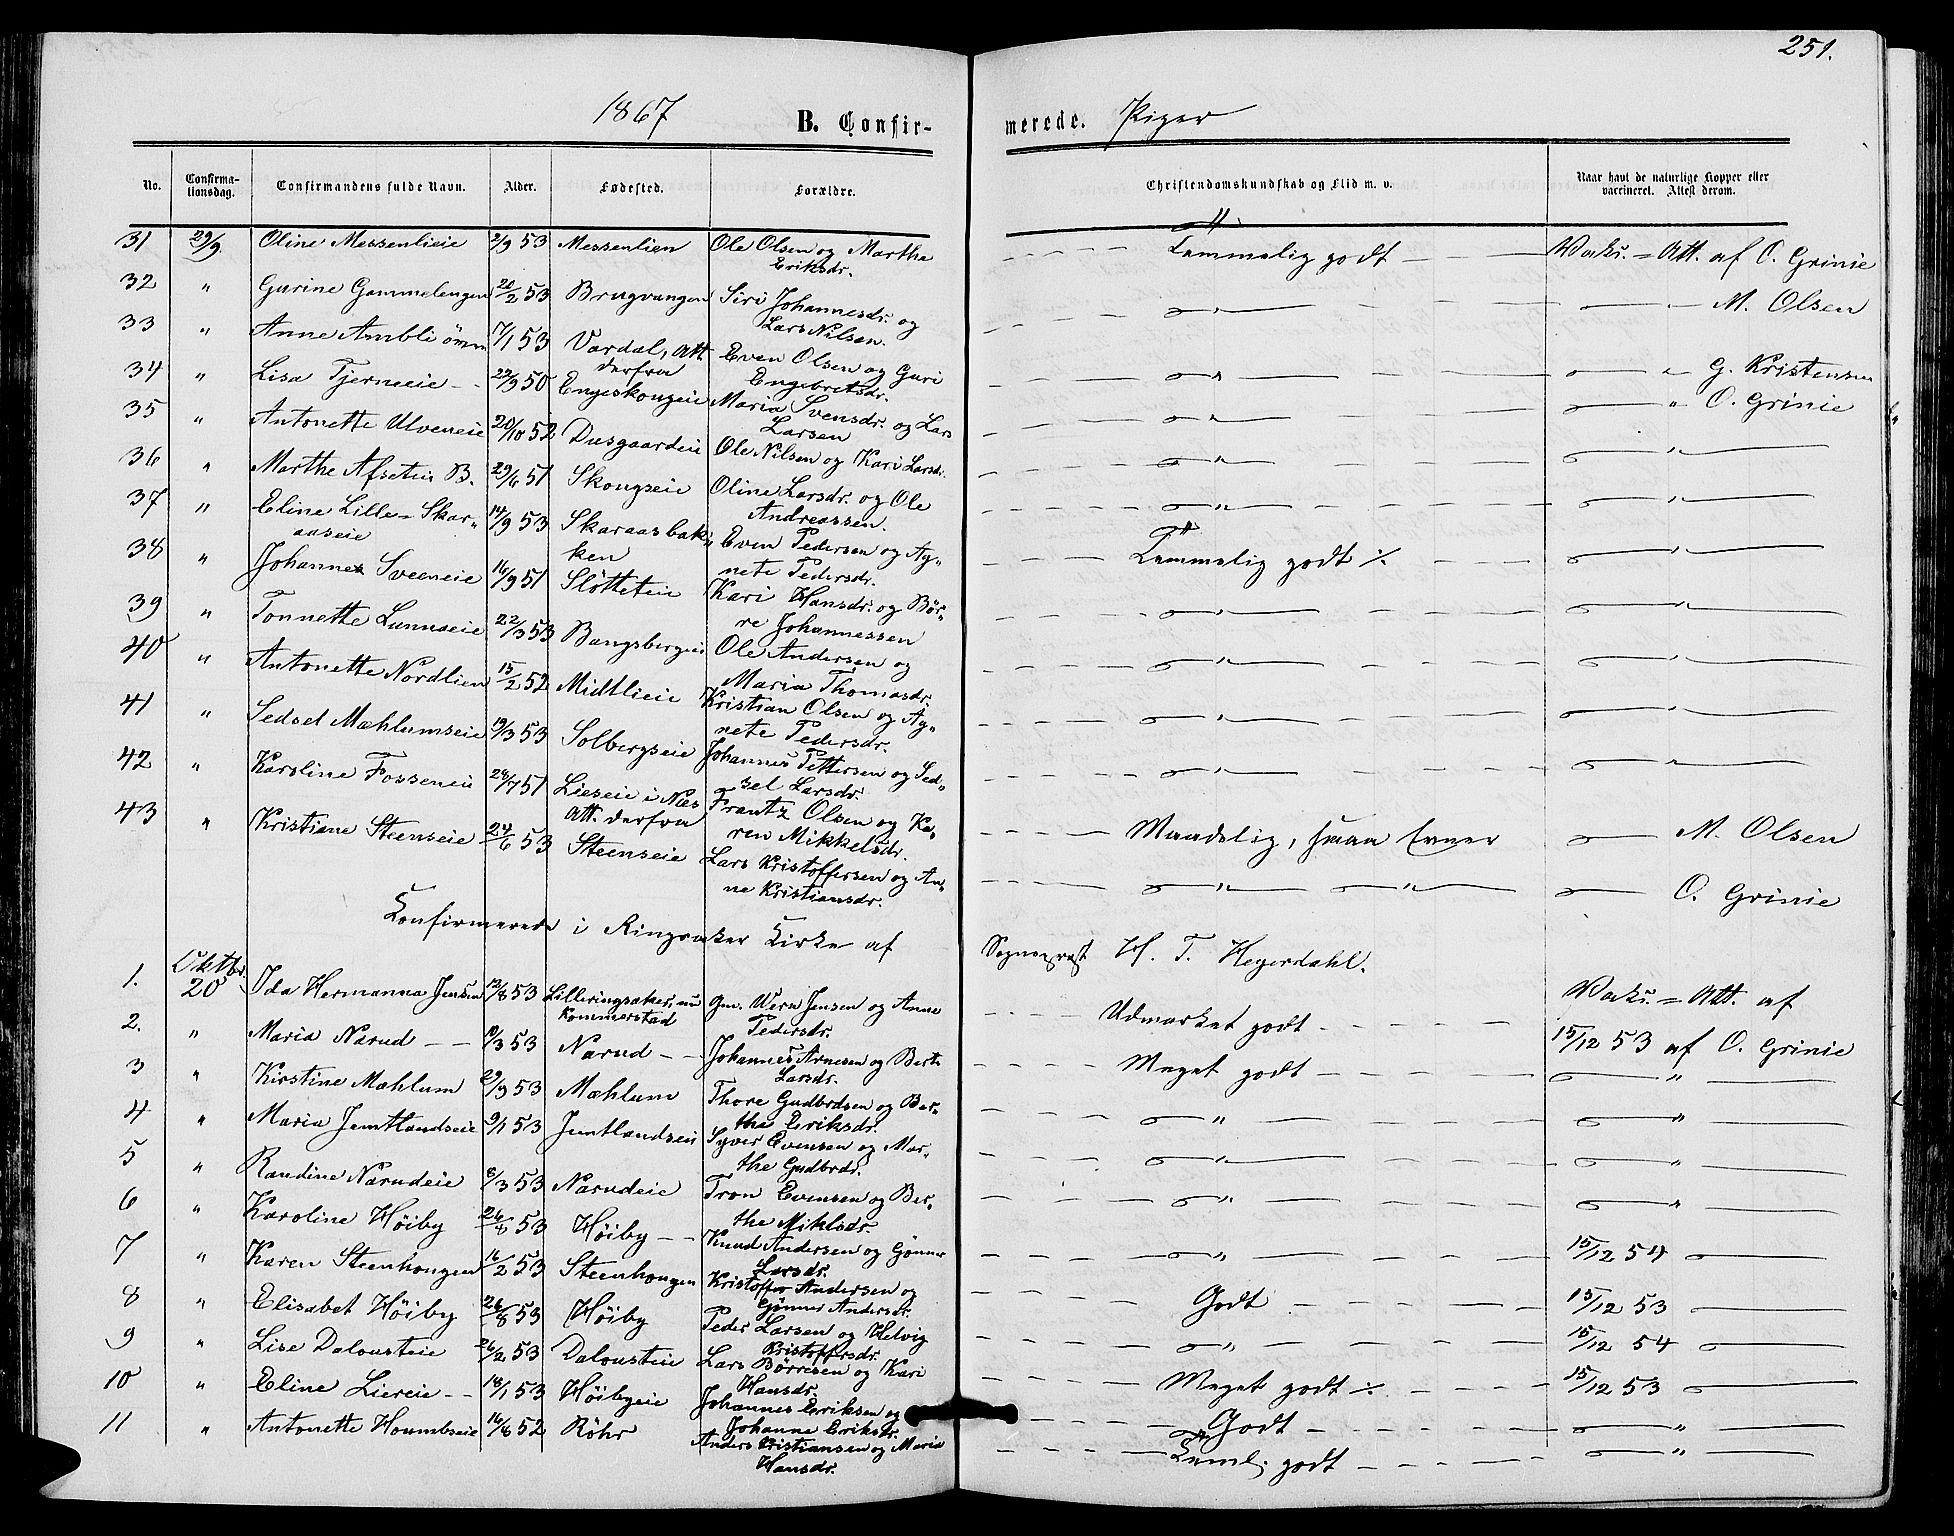 251.
1867 B. Confirmerede. Piger
No. Confirmationsdag. Confirmandens fulde Navn. Alder. Fødested. Forældre. Christendomskundskab og Flid m. v. Naar havt de naturlige Kopper eller vaccineret. Attest derom.
31 29/9. Oline Messenlieie 2/9 53 Messenlien Ole Olsen og Marthe Eriksdr. Temmelig godt Vaks. = Att. af O. Grinie
32 " Gurine Gammelengen 20/2 53 Brugvangen Siri Johannesdr. og Lars Nilsen. " " M. Olsen
33 " Anne Ambli ömm 17/1 53 Vardal, att. derfra Even Olsen og Guri Engebretsdr. " " G. Kristensen
34 " Lisa Tjerneeie 29/9 50 Engeskougeie Maria Svensdr. og Lars Larsen " " O. Grinie
35 " Antonette Ulveneie 20/10 52 Dusgaardeie Ole Nilsen og Kari Larsdr. " "
36 " Marthe Afseteie B. 29/6 51 Skougseie Oline Larsdr. og Ole Andreassen. " "
37 " Eline Lille-Skaraaseie 14/9 53 Skaraasbakken Even Pedersen og Agnete Pedersdr. Temmelig godt ./. "
38 " Johannes Sveeneie 16/9 51 Slötteteie Kari Hansdr. og Börre Johannessen " "
39 " Tonnette Lunnseie 22/3 53 Bangsbergeie Ole Andersen og Maria Thomasdr. " "
40 " Antonette Nordlien 15/2 52 Midtlieie Kristian Olsen og Agnete Pedersdr. " "
41 " Sedsel Mæhlumseie 19/3 53 Solbergseie Johannes Pettersen og Sedsel Larsdr. " "
42 " Karoline Fosseneie 28/7 51 Lieseie i Næs att. derfra Frantz Olsen og Karen Mikkelsdr. Maadelig, smaa Evner M. Olsen
43 " Kristiane Steenseie 24/6 53 Steenseie Lars Kristoffersen og Anne Kristiansdr. " " O. Grinie
Konfirmerede i Ringsaker Kirke af Sogneprest H. T. Heyerdahl.
1. Oktbr. 20 Ida Hermanna Jensen 12/8 53 Lilleringsaker, nu Kommerstad gm. Wern Jensen og Anne Pedersdr. Udmærket godt Vaks. = Att. af 15/12 53 af O. Grinie
2. " Maria Narud 10/3 53 Narud Johannes Arnesen og Berte Larsdr. Meget godt "
3 " Kirstine Mæhlum 29/9 53 Mæhlum Thore Gudbrdsen og Berthe Eriksdr. " "
4 " Maria Jemtlandseie 9/1 53 Jemtlandseie Syver Evensen og Marthe Gudbrdr. " "
5 " Randine Narudeie 8/3 53 Narudeie Tron Evensen og Berthe Miklsdr. " "
6 " Karoline Höiby 26/8 53 Höiby Knud Andersen og Gönner Larsdr. " 15/12 54
7 " Karen Steenhougen 16/2 53 Steenhougen Kristoffer Andersen og Gönner Andersdr. Godt 15/12 53
8 " Elisabet Höiby 26/8 53 Höiby Peder Larsen og Helvig Kristoffersdr. " 15/12 54
9 " Lise Dalousteie 26/2 53 Dalousteie Lars Börresen og Kari Hansdr. Meget godt ./. 15/12 53
10 " Eline Liereie 18/1 53 Höibyeie Johannes Eriksen og Johanne Eriksdr. Godt "
11 " Antonette Houmbseie 16/8 52 Röhr Anders Kristiansen og Maria Hansdr. Teml. godt "